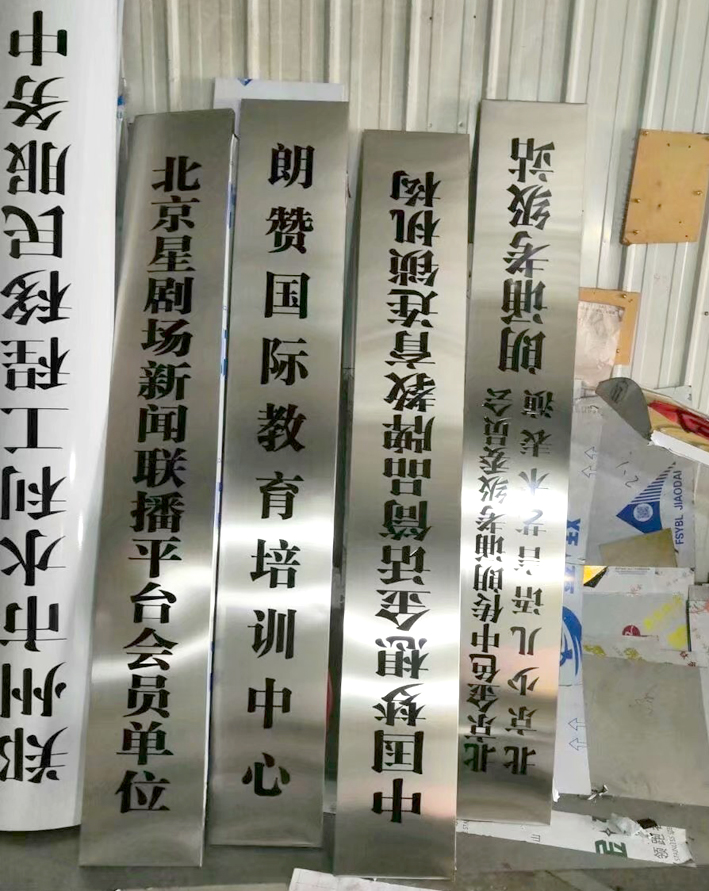 郑州市水利工程移民服务中
北京星剧场新闻联播平台会员单位
朗赞国际教育培训中心
中国梦想金话筒品牌教育连锁机构
北京金色中传朗诵考级委员会
北京少儿语言艺术表演
朗诵考级站
FSYBL JIAODAI